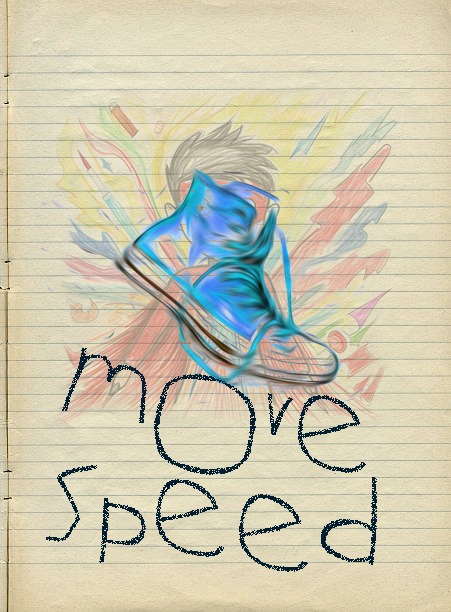 move
speed